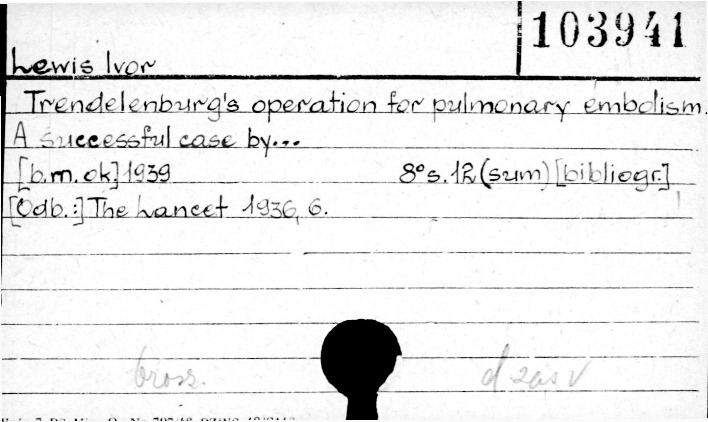 103941
Lewis Ivor
Trendelenburg's operation for pulmonary embolism.
A successful case by...
[b.m.ok] 1939 8° s. 12 (sum) [bibliogr.]
[Odb.:] The Lancet 1936, 6.
brosz.